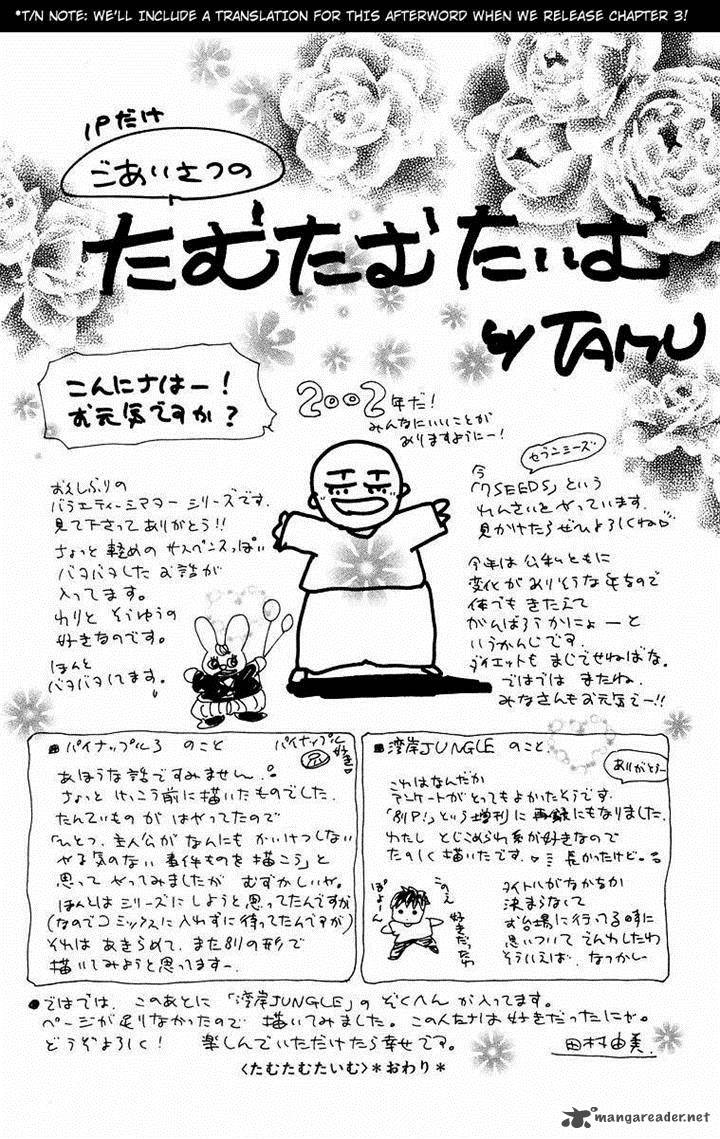 *T/N NOTE: WE'LL INCLUDE A TRANSLATION FOR THIS AFTERWORD WHEN WE RELEASE CHAPTER 3!
1Pだけ
ごあいさつの
たむたむたいむ
by TAMU
こんにちはー!
お元気ですか?
2002年だ!
みんなにいいことが
ありますようにー!
おひさしぶりの
バラエティーシアター シリーズです。
見て下さってありがとう!!
ちょっと軽めの サスペンスっぽい
バタバタした お話が
入ってます。
わりと そうゆうの
好きなのです。
ほんと
バタバタしてます。
セブンシーズ
今
「7SEEDS」という
れんさいをやっています。
見かけたらぜひよろしくね♡
今年は公私ともに
変化がありそうな年なので
体でもきたえて
がんばろうかにょーと
いうかんじです。
ダイエットも まじでせねばな。
ではでは またね。
みなさんもお元気でー!!
パイナップル3 のこと
パイナップル
好き
あほうな話ですみません。
ちょっと けっこう前に描いたものでした。
たんていものが はやってたので
「ひとつ、主人公が なんにも かいけつしない
やる気のない 事件ものを描こう」と
思って やってみましたが むずかしいや。
ほんとは シリーズに しようと思ってたんですが
(なのでコミックスに入れずに待ってたんですが)
それは あきらめて、また別の形で
描いてみようと思ってますー。
湾岸JUNGLE のこと
ありがとうー
これはなんだか
アンケートがとってもよかったそうです。
「別P!」という増刊に 再録にもなりました。
わたし とじこめられ系が好きなので
たのしく描いたです。♡ 長かったけど。
ぽよーん
このえ
好きだったわ
タイトルがなかなか
決まらなくて
お台場に行ってる時に
思いついて でんわしたわ
そういえば。なつかしー
●ではでは、このあとに「湾岸JUNGLE」の ぞくへん が入ってます。
ページが足りなかったので 描いてみました。この人たちは好きだったにゃ。
どうぞよろしく! 楽しんでいただけたら幸せです。
田村由美
〈たむたむたいむ〉*おわり*
mangareader.net